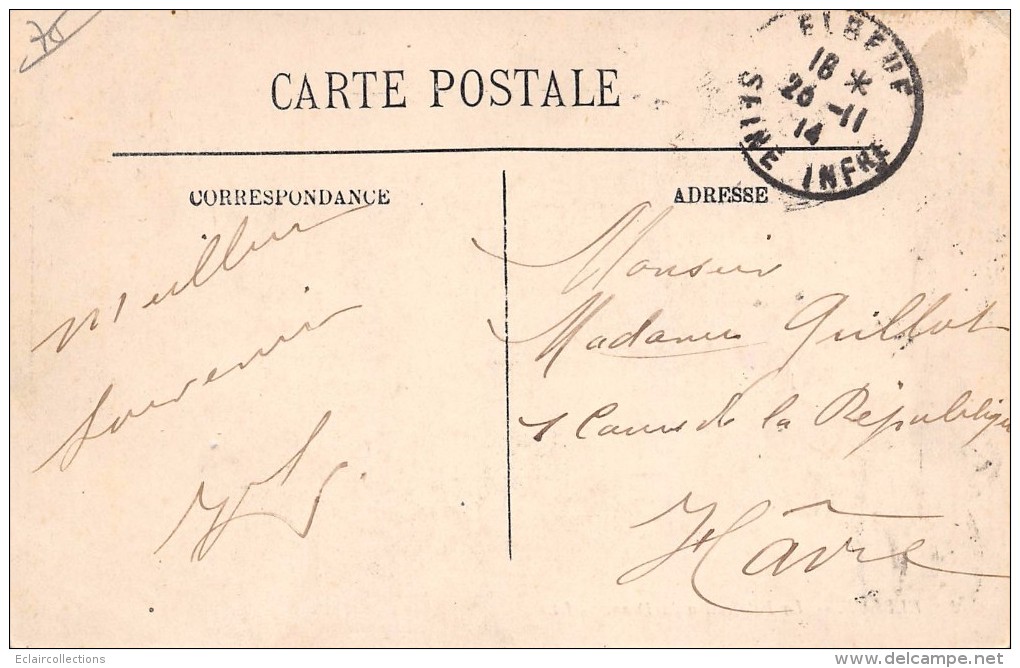 75
CARTE POSTALE
ELBEUF
18 *
26 -11
14
SEINE INFRE
CORRESPONDANCE
ADRESSE
Meilleur
Souvenir
Monsieur
Madame Guillot
1 Cours de la République
Hâvre
Eclaircollections
delcampe.net